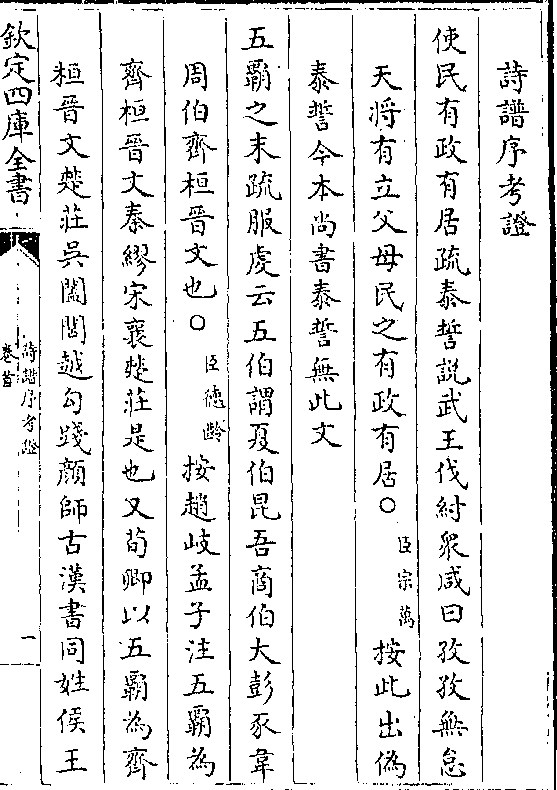 詩譜序考證
使民有政有居疏泰誓説武王伐紂衆咸曰孜孜無怠
天将有立父母民之有政有居○臣宗萬按此出偽
泰誓今本尚書泰誓無此文
五霸之末疏服虔云五伯謂夏伯昆吾商伯大彭豕韋
周伯齊桓晉文也○臣德齡按趙岐孟子注五霸為
齊桓晉文秦繆宋襄楚莊是也又荀卿以五霸為齊
桓晉文楚莊吳闔閭越勾踐顔師古漢書同姓侯王
欽定四庫全書
詩譜序考證
卷首
一